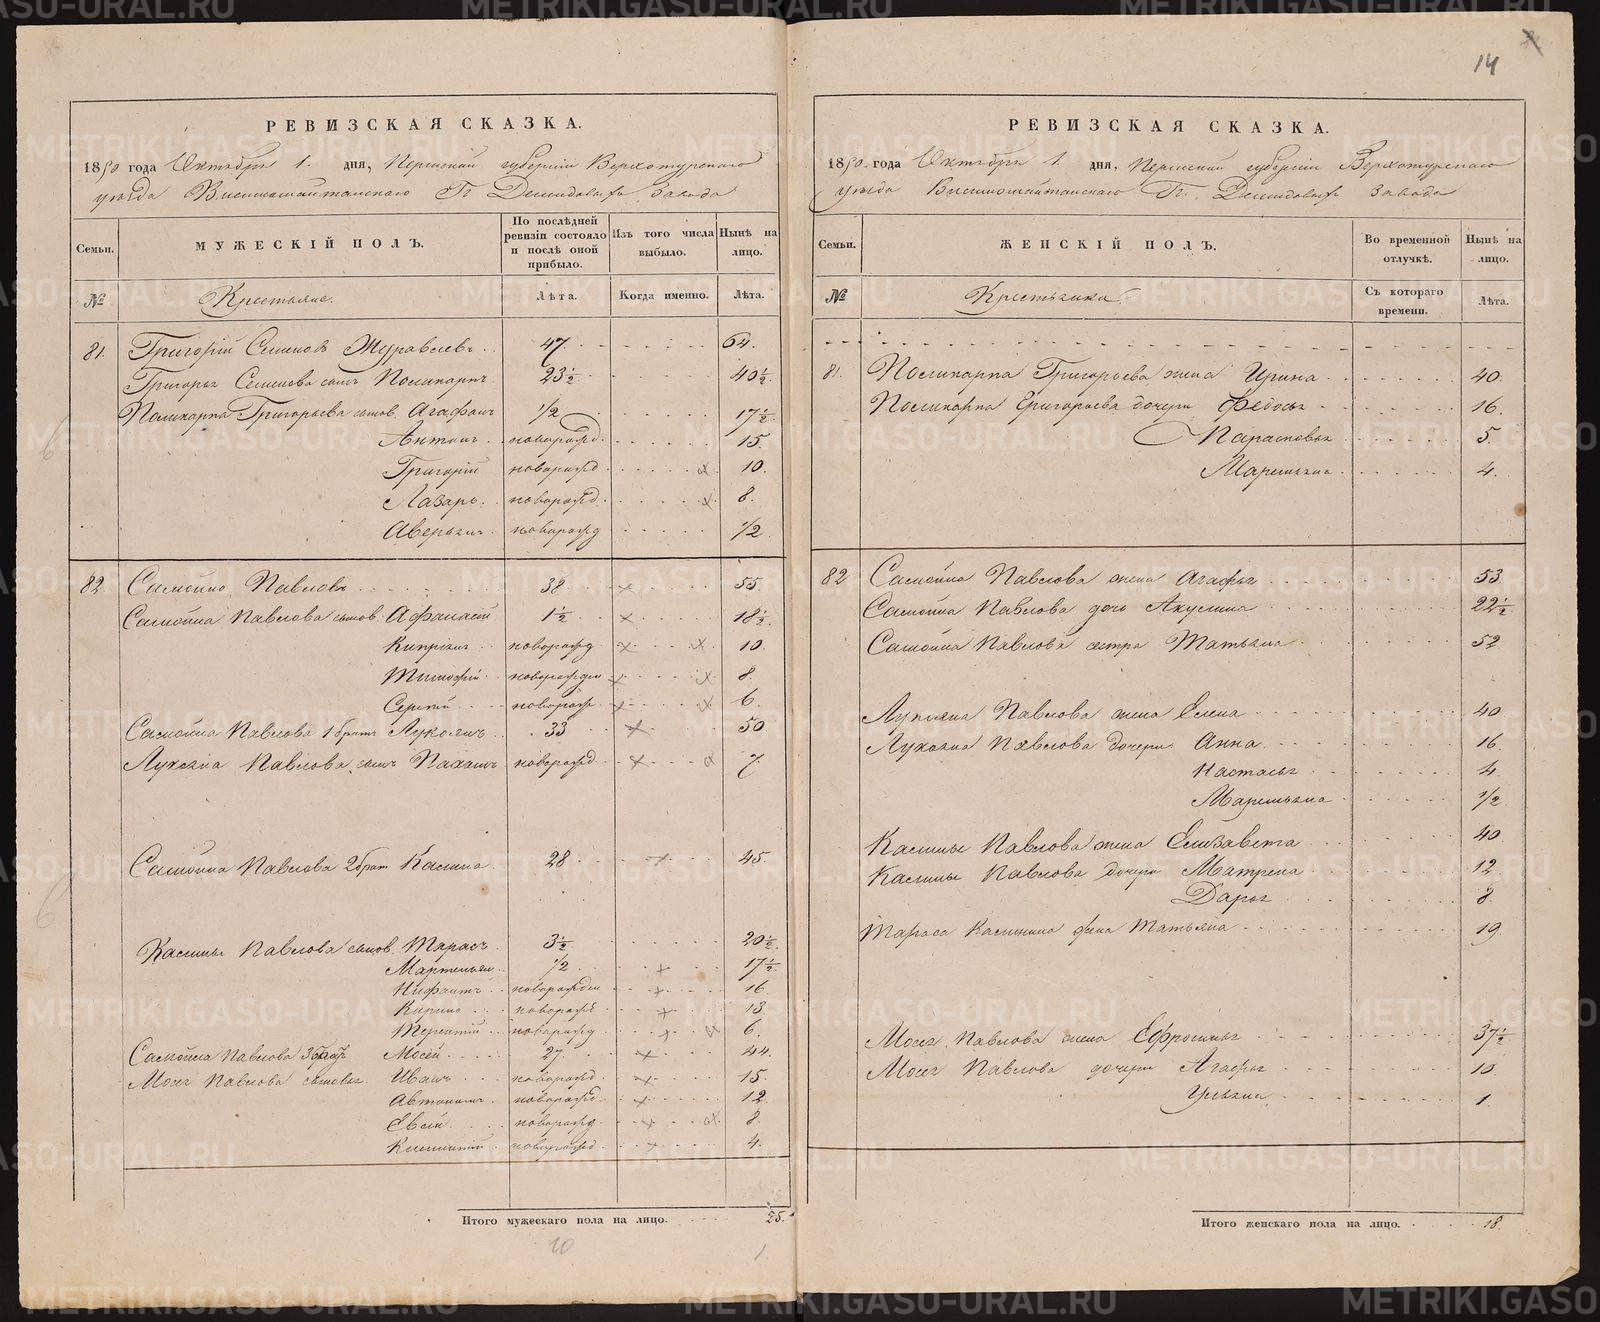 14
РЕВИЗСКАЯ СКАЗКА.
1850 года Октября 1. дня, Пермской губернии Верхотурскаго
уезда Висимошайтанскаго Гг Демидовыхъ Завода
Семьи.
МУЖЕСКІЙ ПОЛЪ.
По послѣдней ревизіи состояло и послѣ оной прибыло.
Изъ того числа выбыло.
Нынѣ на лицо.
№
Крестьяне.
Лѣта.
Когда именно.
Лѣта.
81. Григорій Семеновъ Журавлевъ 47 64.
Григорья Семенова сынъ Поликарпъ 23 1/2 40 1/2
Поликарпа Григорьева сынов. Агафонъ 1/2 17 1/2
Антонъ новорожд. 15
Григорій новорожд 10.
Лазарь новорожд. 8
Аверьянъ новорожд 1/2
82 Самойло Павловъ 38 55.
Самойла Павлова сынов. Афанасій 1 1/2 18 1/2
Кипріянъ новорожд 10.
Тимофей новорожден 8.
Сергей новорожд. 6.
Самойла Павлова 1 братъ Лукоянъ 33 50
Лукояна Павлова сынъ Пахомъ новорожд 7
Самойла Павлова 2 брат Калина 28 45.
Калины Павлова сынов. Тарасъ 3 1/2 20 1/2
Мартемьян 1/2 17 1/2
Нифантъ новорожден 16
Кирило новорожд 13
Терентій новорожд 6.
Самойла Павлова 3 братъ Мосей 27 44.
Мосея Павлова сыновья Иванъ новорожд 15.
Автономъ новорожд 12
Евсей новорожд 8.
Климентій новорожд 4.
Итого мужескаго пола на лицо. 25.
20
1.
РЕВИЗСКАЯ СКАЗКА.
1850 года Октября 1. дня, Пермской губерніи Верхотурскаго
уезда Висимошайтанскаго Гг. Демидовыхъ Завода
Семьи.
ЖЕНСКІЙ ПОЛЪ.
Во временной отлучкѣ.
Нынѣ на лицо.
№
Крестьянки.
Съ котораго времени.
Лѣта.
81. Поликарпа Григорьева жена Ирина 40.
Поликарпа Григорьева дочери Федосья 16.
Парасковья 5.
Маремьяна 4.
82 Самойла Павлова жена Агафья 53
Самойла Павлова дочь Акулина 22 1/2
Самойла Павлова сестра Татьяна 52
Лукояна Павлова жена Елена 40
Лукояна Павлова дочери Анна 16.
Настасья 4.
Маремьяна 1/2
Калины Павлова жена Елизавета 40
Калины Павлова дочери Матрена 12
Дарья 8
Тараса Калинина жена Татьяна 19.
Мосея Павлова жена Ефросинья 37 1/2
Мосея Павлова дочери Агафья 10
Ульяна 1.
Итого женскаго пола на лицо. 18.
METRIKI.GASO-URAL.RU